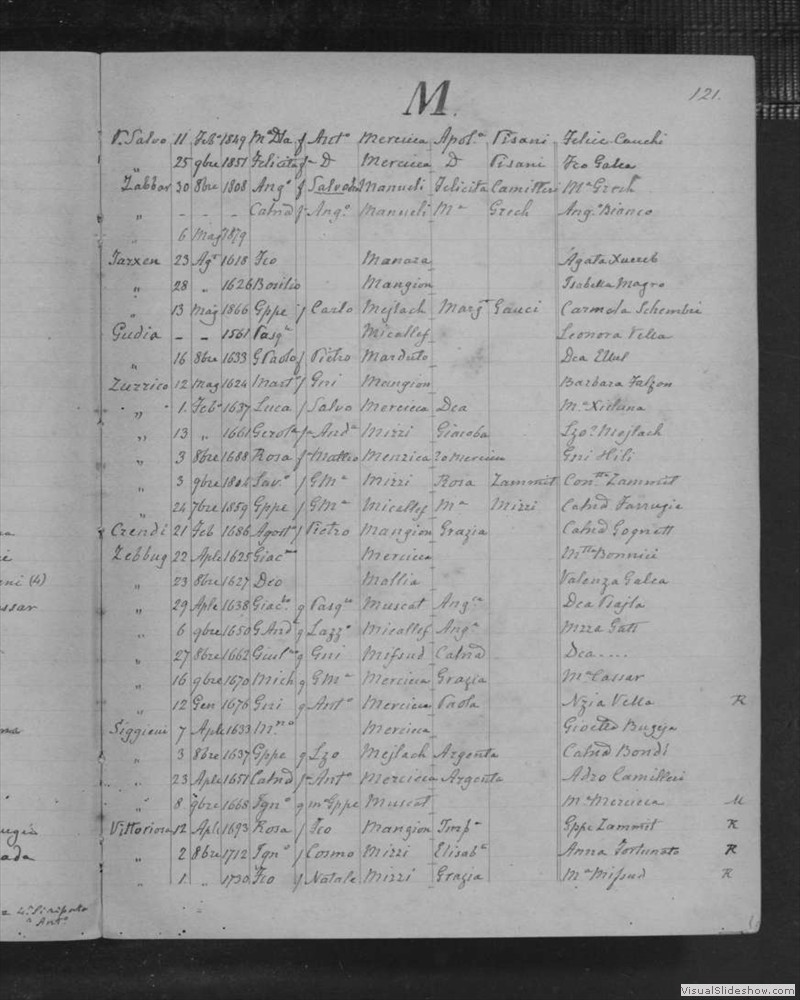 M.
121.
P. Salvo 11 Feb° 1849 Mª Dta f Ant° Mercieca Apolª Pisani Felice Cauchi
" 25 9bre 1851 Felicita f D Mercieca D Pisani Fco Galea
Zabbar 30 8bre 1808 Ang° f Manueli Felicita Camilleri Mª Grech
" - - - Catnd f Ang° Manueli Mª Grech Ang° Bianco
" 6 Mag 1879
Tarxen 23 Ag° 1618 Fco Manara Agata Xuereb
" 28 " 1626 Basilio Mangion Isabella Magro
" 13 Mag 1866 Gppe f Carlo Mejlach Margª Gauci Carmela Schembri
Gudia - - 1561 Pasqle Micallef Leonora Vella
" 16 8bre 1633 G Paolo f Pietro Marduto Dea Ellul
Zurrico 12 Mag 1624 Mart° f Gni Mangion Barbara Falzon
" 1 Feb° 1637 Luca f Salvo Mercieca Dea Mª Xicluna
" 13 " 1661 f Andª Mizzi Giacoba Lzª Mejlach
" 3 8bre 1688 Rosa f Matteo Gni Hili
" 3 9bre Sav° f G Mª Mizzi Rosa Zammit Zammit
" 24 7bre 1859 Gppe f G Mª Micallef Mª Mizzi Catnd Farrugia
Crendi 21 Feb 1686 Agost° f Pietro Mangion Grazia Catnd
Zebbug 22 Aple 1625 Mercieca Bonnici
" 23 8bre 1627 Deo Mallia Valenza Galea
" 29 Aple 1638 g Pasqle Muscat Angca Dea Psajla
" 6 9bre 1650 G Andª g Lazz° Micallef Angª Mzza Gatt
" 27 8bre 1662 g Gni Mifsud Catnd Dea ....
" 16 9bre 1670 Mich g G Mª Mercieca Grazia Mª Cassar
" 12 Gen 1676 Gni g Ant° Mercieca Paola Nzia Vella R
Siggieui 7 Aple 1633 Mercieca Bugeja
" 3 8bre 1637 Gppe g Lzo Mejlach Argenta Catnd Bondi
" 23 Aple 1651 Catnd f Ant° Mercieca Argenta Adzo Camilleri
" 8 9bre 1668 Ign° g Gppe Muscat Mª Mercieca M
Vittoriosa 12 Apl 1693 Rosa f Fco Mangion Impª Gppe Zammit R
" 2 8bre 1712 Ign° f Cosmo Mizzi Elisabª Anna Fortunato R
" 1 " 1730 Fco f Natale Mizzi Grazia Mª Mifsud R
VisualSlideshow.com